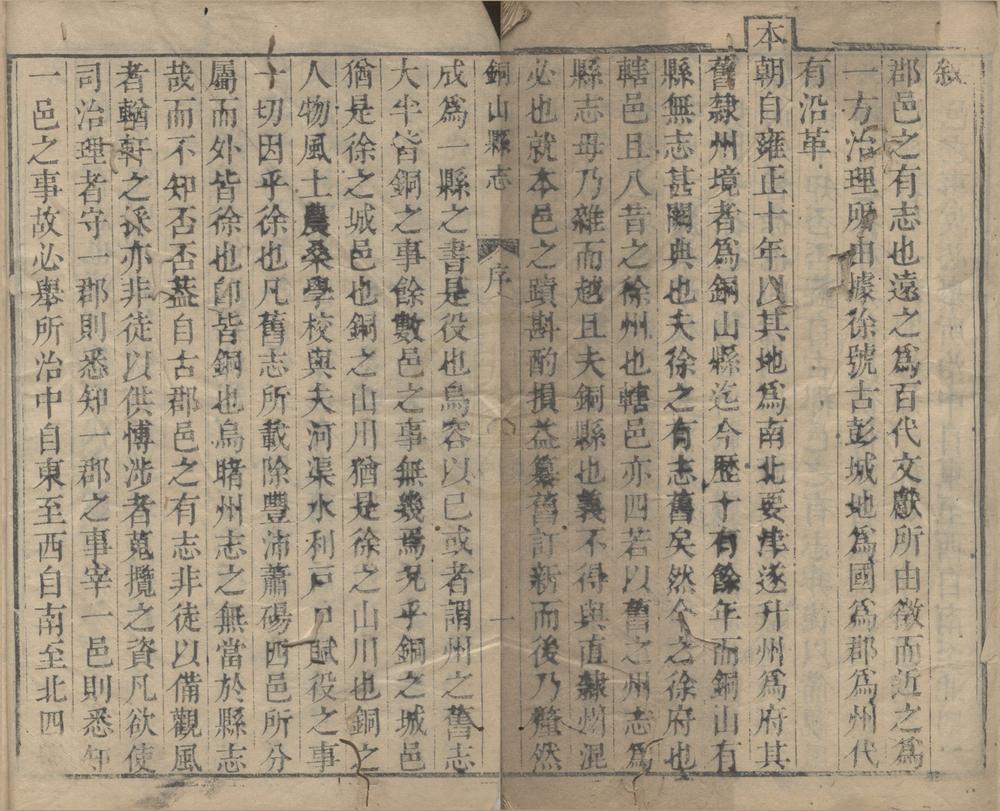 敘
郡邑之有志也遠之爲百代文獻所由徵而近之爲
一方治理所由據徐號古彭城地爲國爲郡爲州代
有沿革
本朝自雍正十年以其地爲南北要津遂升州爲府其
舊隸州境者爲銅山縣迄今歷十有餘年而銅山有
縣無志甚闕典也夫徐之有志舊矣然今之徐府也
轄邑且八昔之徐州也轄邑亦四若以舊之州志爲
縣志毋乃雜而越且夫銅縣也義不得與直隸州混
必也就本邑之蹟斟酌損益纂舊訂新而後乃釐然
銅山縣志 序 一
成爲一縣之書是役也烏容以已或者謂州之舊志
大半皆銅之事餘數邑之事無幾焉况乎銅之城邑
猶是徐之城邑也銅之山川猶是徐之山川也銅之
人物風土農桑學校與夫河渠水利戶口賦役之事
十切因乎徐也凡舊志所載除豐沛蕭碭四邑所分
屬而外皆徐也卽皆銅也烏睹州志之無當於縣志
哉而不知否否葢自古郡邑之有志非徒以備觀風
者輶軒之採亦非徒以供博涉者蒐攬之資凡欲使
司治理者守一郡則悉知一郡之事宰一邑則悉知
一邑之事故必舉所治中自東至西自南至北四